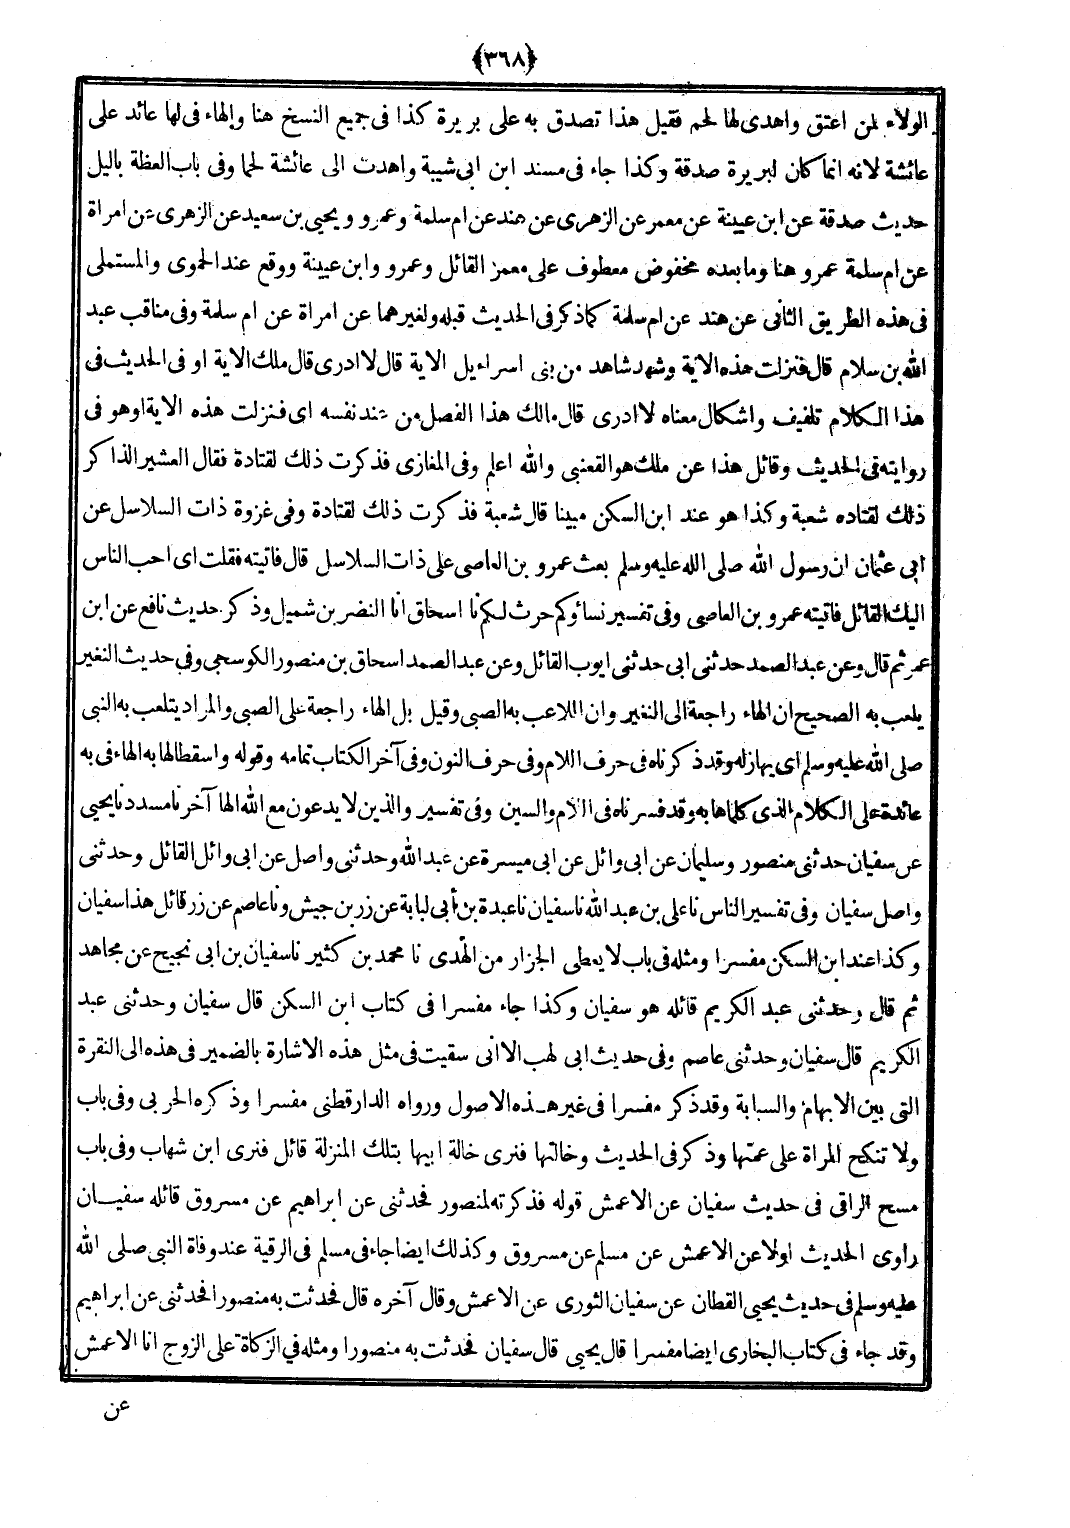 ﴿٣٦٨﴾
الولاء لمن اعتق واهدى لها لحم فقيل هذا تصدق به على بريرة كذا فى جميع النسخ هنا والهاء فى لها عائد على
عائشة لانه انما كان لبريرة صدقة وكذا جاء فى مسند ابن ابى شيبة واهدت الى عائشة لحما وفى باب العظة باليل
حديث صدقة عن ابن عيينة عن معمر عن الزهرى عن هند عن ام سلمة وعمرو ويحيى بن سعيد عن الزهرى عن امراة
عن ام سلمة عمرو هنا وما بعده مخفوض معطوف على معمر القائل وعمرو وابن عيينة ووقع عند الحموى والمستملى
فى هذه الطريق الثانى عن هند عن ام سلمة كما ذكر فى الحديث قبله ولغيرهما عن امراة عن ام سلمة وفى مناقب عبد
الله بن سلام قال فنزلت هذه الاية وشهد شاهد من بنى اسراءيل الاية قال لا ادرى قال ملك الاية او فى الحديث فى
هذا الكلام تلفيف واشكال معناه لا ادرى قال مالك هذا الفصل من عند نفسه اى فنزلت هذه الاية او هو فى
روايته فى الحديث وقائل هذا عن ملك هو القعنبى والله اعلم وفى المغازى فذكرت ذلك لقتادة فقال العشير الذاكر
ذلك لقتاده شعبة وكذا هو عند ابن السكن مبينا قال شعبة فذكرت ذلك لقتادة وفى غزوة ذات السلاسل عن
ابى عثمان ان رسول الله صلى الله عليه وسلم بعث عمرو بن العاصى على ذات السلاسل قال فاتيته فقلت اى احب الناس
اليك القائل فاتيته عمرو بن العاصى وفى تفسير نساؤكم حرث لكم نا اسحاق انا النضر بن شميل وذكر حديث نافع عن ابن
عمر ثم قال وعن عبد الصمد حدثنى ابى حدثنى ايوب القائل وعن عبد الصمد اسحاق بن منصور الكوسجى وفى حديث النغير
يلعب به الصحيح ان الهاء راجعة الى النغير وان اللاعب به الصبى وقيل بل الهاء راجعة على الصبى والمراد يتلعب به النبى
صلى الله عليه وسلم اى يهازله وقد ذكرناه فى حرف اللام وفى حرف النون وفى آخر الكتاب تمامه وقوله واسقطالها به الهاء فى به
عائدة على الكلام الذى كلماها به وقد فسرناه فى اللام والسين وفى تفسير والذين لا يدعون مع الله الها آخر نا مسدد نا يحيى
عن سفيان حدثنى منصور وسليمان عن ابى وائل عن ابى ميسرة عن عبد الله وحدثنى واصل عن ابى وائل القائل وحدثنى
واصل سفيان وفى تفسير الناس نا على بن عبد الله نا سفيان نا عبدة بن أبى لبابة عن زر بن حبيش ونا عاصم عن زر قائل هذا سفيان
وكذا عند ابن السكن مفسرا ومثله فى باب لا يعطى الجزار من الهدى نا محمد بن كثير نا سفيان بن ابى نجيح عن مجاهد
ثم قال وحدثنى عبد الكريم قائله هو سفيان وكذا جاء مفسرا فى كتاب ابن السكن قال سفيان وحدثنى عبد
الكريم قال سفيان وحدثنى عاصم وفى حديث ابى لهب الا انى سقيت فى مثل هذه الاشارة بالضمير فى هذه الى النقرة
التى بين الابهام والسبابة وقد ذكر مفسرا فى غير هذه الاصول ورواه الدارقطنى مفسرا وذكره الحربى وفى باب
ولا تنكح المراة على عمتها وذكر فى الحديث وخالتها فنرى خالة ابيها بتلك المنزلة قائل فنرى ابن شهاب وفى باب
مسح الراقى فى حديث سفيان عن الاعمش قوله فذكرته لمنصور فحدثنى عن ابراهيم عن مسروق قائله سفيان
راوى الحديث اولا عن الاعمش عن مسلم عن مسروق وكذلك ايضا جاء فى مسلم فى الرقية عند وفاة النبى صلى الله
عليه وسلم فى حديث يحيى القطان عن سفيان الثورى عن الاعمش وقال آخره قال فحدثت به منصورا فحدثنى عن ابراهيم
وقد جاء فى كتاب البخارى ايضا مفسرا قال يحيى قال سفيان فحدثت به منصورا ومثله فى الزكاة على الزوج انا الاعمش
عن